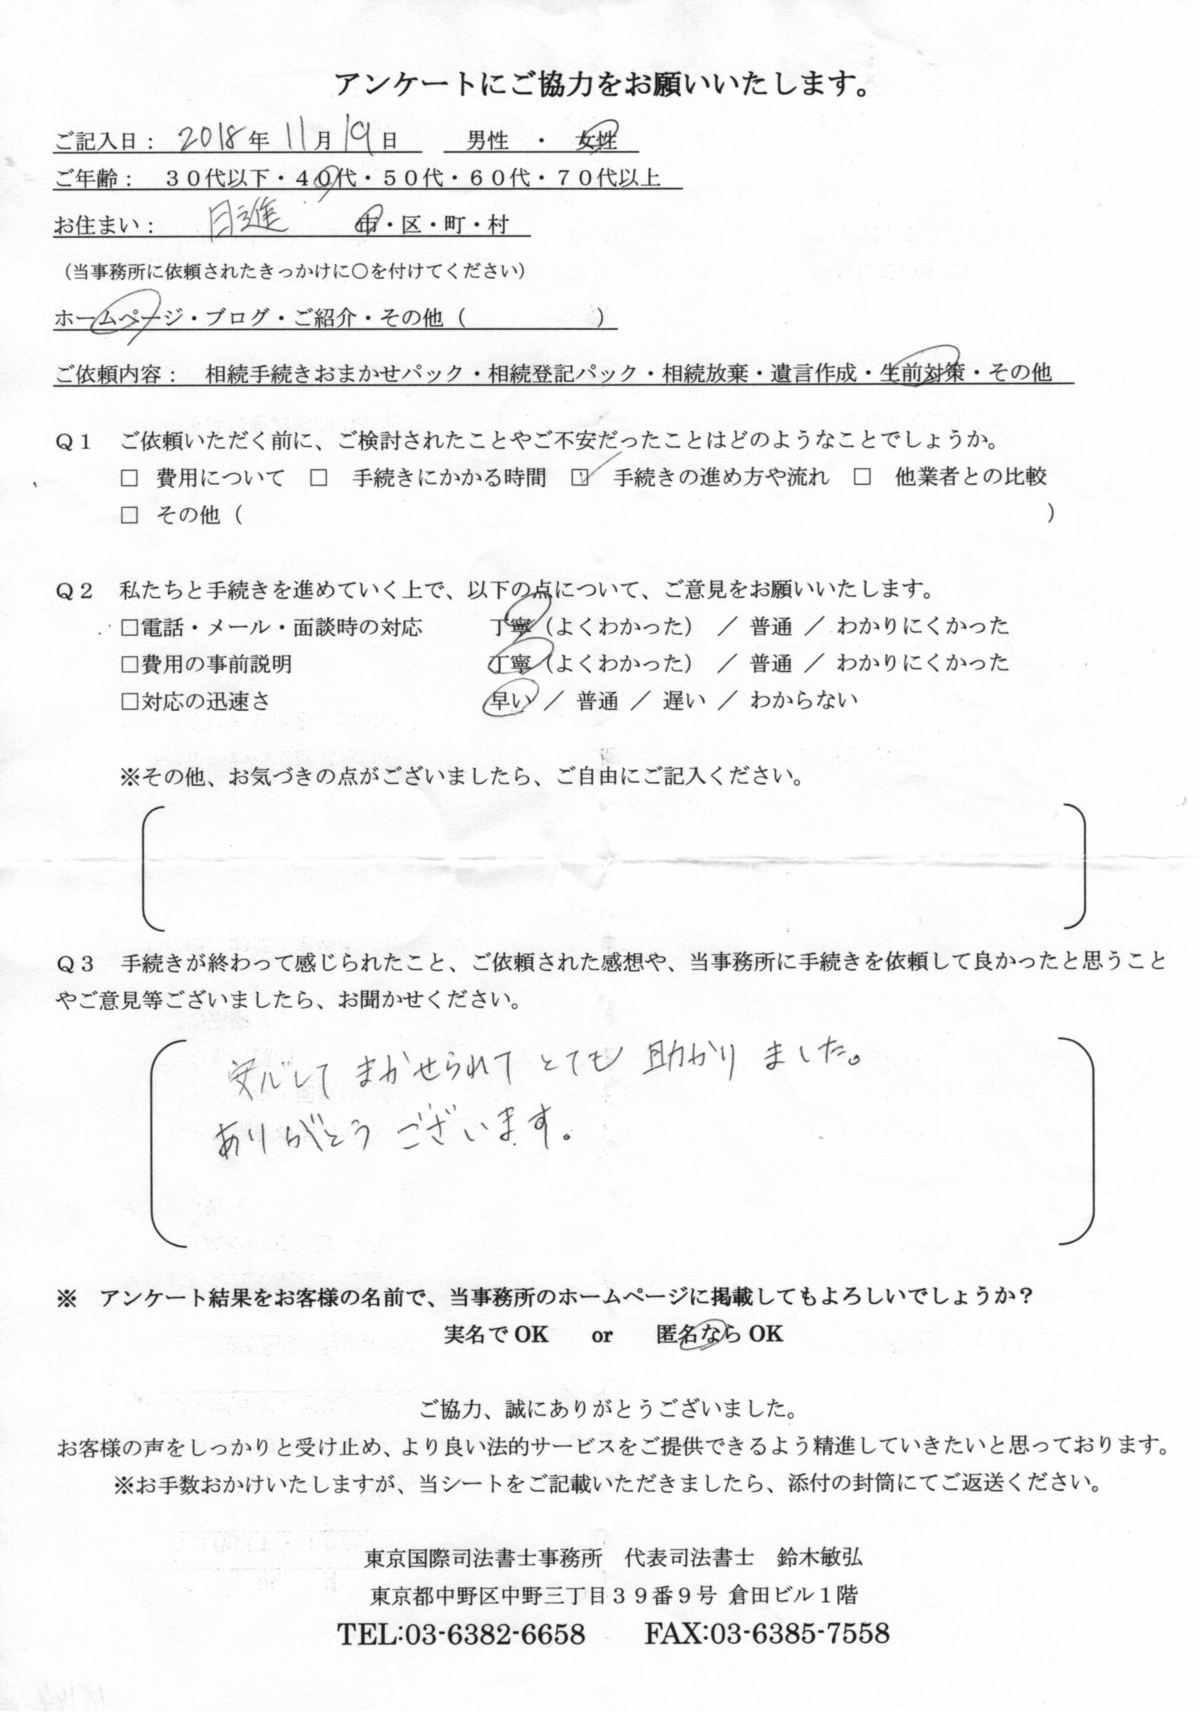 アンケートにご協力をお願いいたします。
ご記入日： 2018年 11月 19日　男性 ・ 女性
ご年齢： ３０代以下・４０代・５０代・６０代・７０代以上
お住まい： 日進 市・区・町・村
（当事務所に依頼されたきっかけに○を付けてください）
ホームページ・ブログ・ご紹介・その他（　　　　　　）
ご依頼内容： 相続手続きおまかせパック・相続登記パック・相続放棄・遺言作成・生前対策・その他
Ｑ１　ご依頼いただく前に、ご検討されたことやご不安だったことはどのようなことでしょうか。
□ 費用について □ 手続きにかかる時間 ☑ 手続きの進め方や流れ □ 他業者との比較
□ その他（　　　　　　）
Ｑ２　私たちと手続きを進めていく上で、以下の点について、ご意見をお願いいたします。
□電話・メール・面談時の対応　丁寧（よくわかった） ／ 普通 ／ わかりにくかった
□費用の事前説明　丁寧（よくわかった） ／ 普通 ／ わかりにくかった
□対応の迅速さ　早い ／ 普通 ／ 遅い ／ わからない
※その他、お気づきの点がございましたら、ご自由にご記入ください。
Ｑ３　手続きが終わって感じられたこと、ご依頼された感想や、当事務所に手続きを依頼して良かったと思うこと
やご意見等ございましたら、お聞かせください。
安心して まかせられて とても 助かり ました。
ありがとう ございます。
※　アンケート結果をお客様の名前で、当事務所のホームページに掲載してもよろしいでしょうか？
実名でOK　or　匿名ならOK
ご協力、誠にありがとうございました。
お客様の声をしっかりと受け止め、より良い法的サービスをご提供できるよう精進していきたいと思っております。
※お手数おかけいたしますが、当シートをご記載いただきましたら、添付の封筒にてご返送ください。
東京国際司法書士事務所　代表司法書士　鈴木敏弘
東京都中野区中野三丁目３９番９号 倉田ビル１階
TEL:03-6382-6658　FAX:03-6385-7558